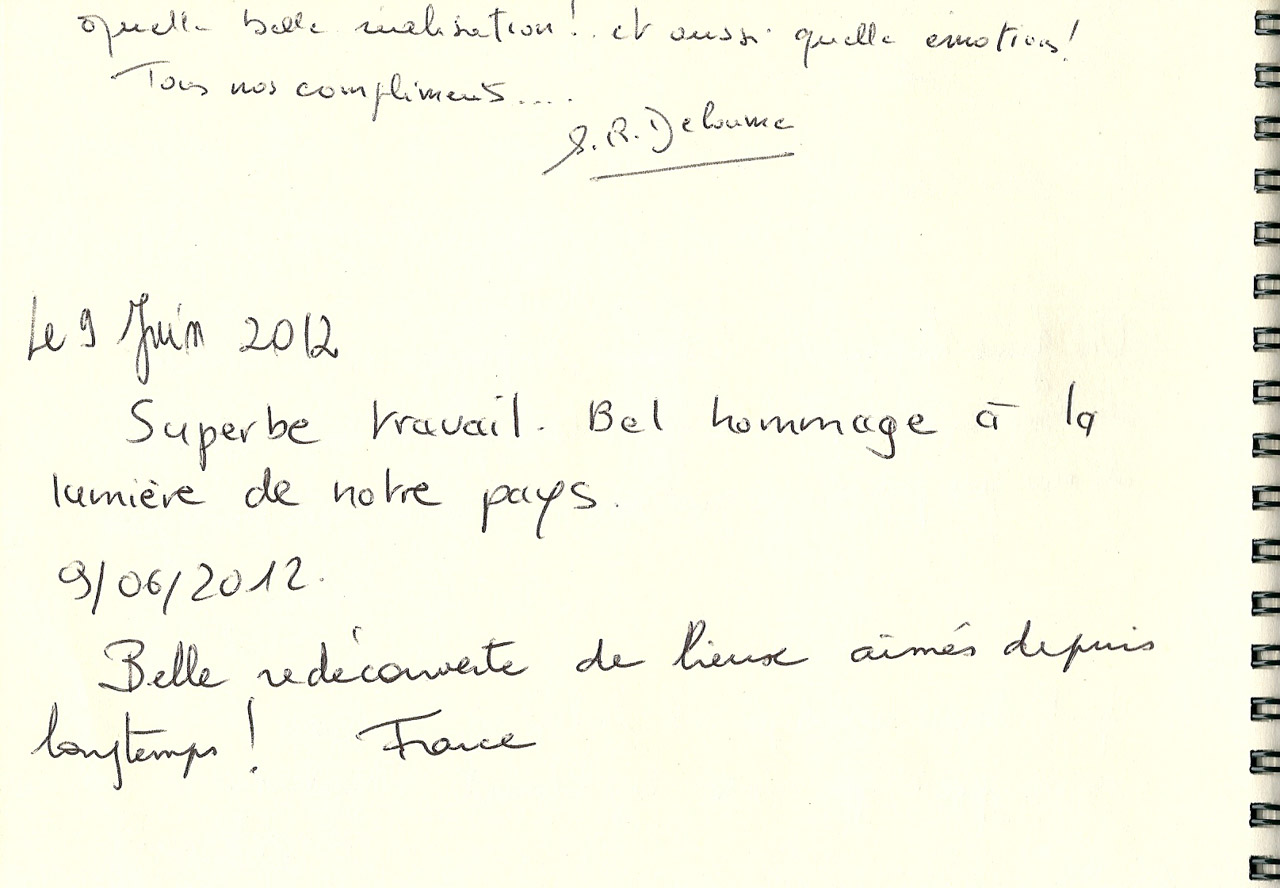 quelle belle réalisation! et aussi quelle émotion!
Tous nos compliments....
S.R. Deloume
Le 9 Juin 2012
Superbe travail. Bel hommage à la
lumière de notre pays.
9/06/2012.
Belle redécouverte de lieux aimés depuis
longtemps! France